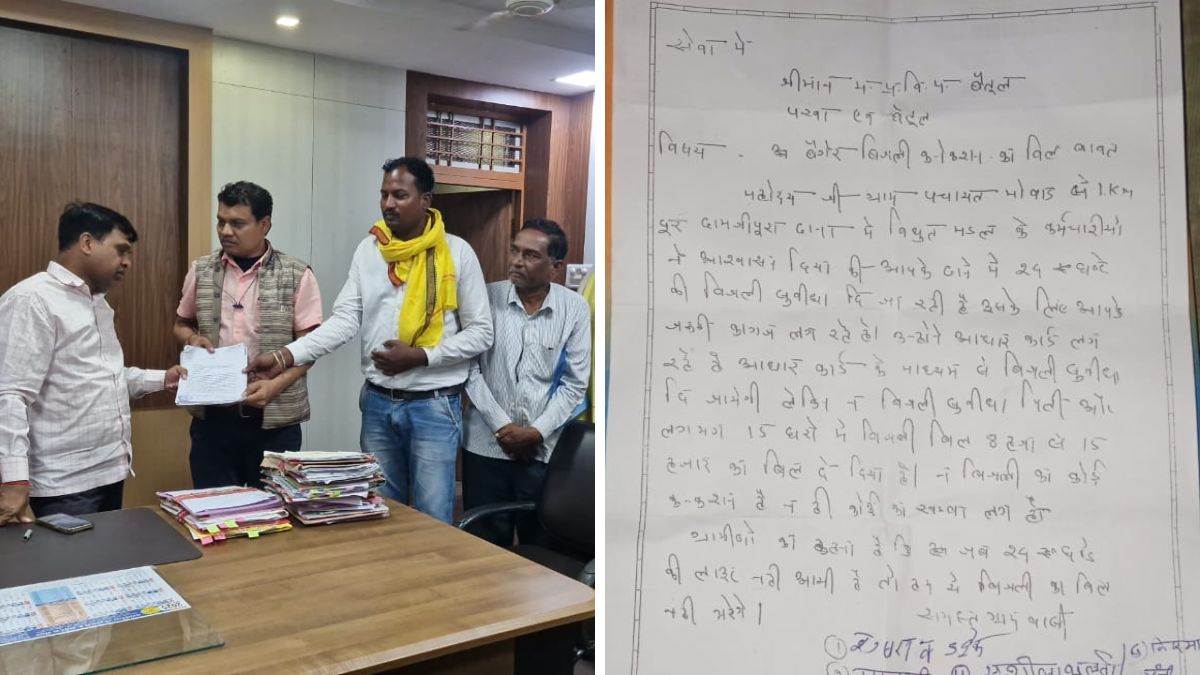 सेवा में
श्रीमान म.प्र.वि.प. बैतूल
बैतूल
विषय - बैगेर बिजली कनेकशन का बिल बाबत
महोदय जी ग्राम पंचायत मोवाड से 1 Km
दूर दामजीपूरा ढाना में विधुत मडल के कर्मचारीयो
ने आश्वासन दिया की आपके ढाने में 24 घण्टे
की बिजली सुवीधा दि जा रही है इसके लिए आपके
जरुरी कागज लग रहे है। उन्होने आधार कार्ड लग
रहे है आधार कार्ड के माध्यम से बिजली सुवीधा
दि जायेगी लेकिन न बिजली सुवीधा मिली और
लगभग 15 घरो में बिजली बिल 8 हजार से 15
हजार का बिल दे दिया है। न बिजली का कोई
कनेकशन है न ही कोई का खम्बा लगा है
ग्रामीणो का कहना है कि जब 24
की लाईट नही आयी है तो हम ये बिजली का बिल
नही भरेगे।
समस्त ग्राम वासी